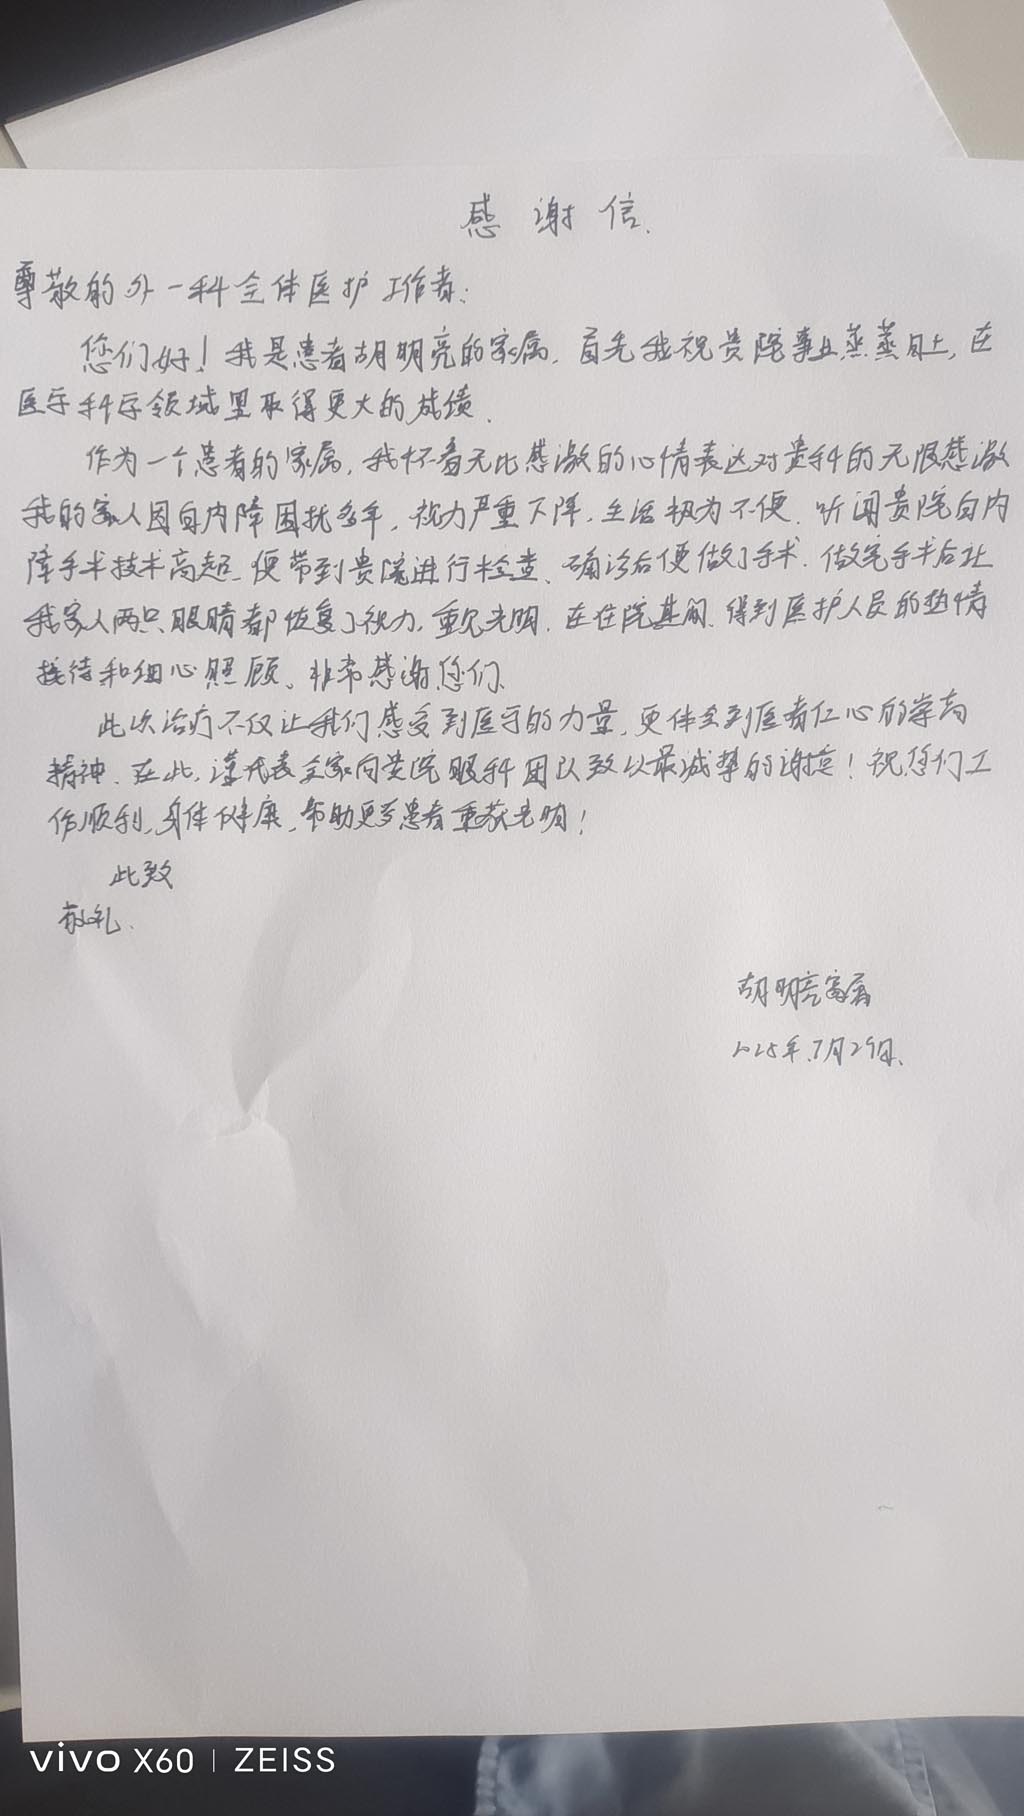 感谢信.
尊敬的外一科全体医护工作者:
您们好!我是患者胡明亮的家属.首先我祝贵院事业蒸蒸日上,在
医学科学领域里取得更大的成绩.
作为一个患者的家属,我怀着无比感激的心情表达对贵科的无限感激
我的家人因白内障困扰多年,视力严重下降,生活极为不便.听闻贵院白内
障手术技术高超.便带到贵院进行检查、确诊后便做了手术.做完手术后让
我家人两只眼睛都恢复了视力,重见光明.在住院其间.得到医护人员的热情
接待和细心照顾。非常感谢您们.
此次治疗不仅让我们感受到医学的力量,更体会到医者仁心的崇高
精神.在此,谨代表全家向贵院眼科团队致以最诚挚的谢意!祝您们工
作顺利,身体健康,帮助更多患者重获光明!
此致
敬礼.
胡明亮家属
2025年7月29日.
vivo X60 | ZEISS